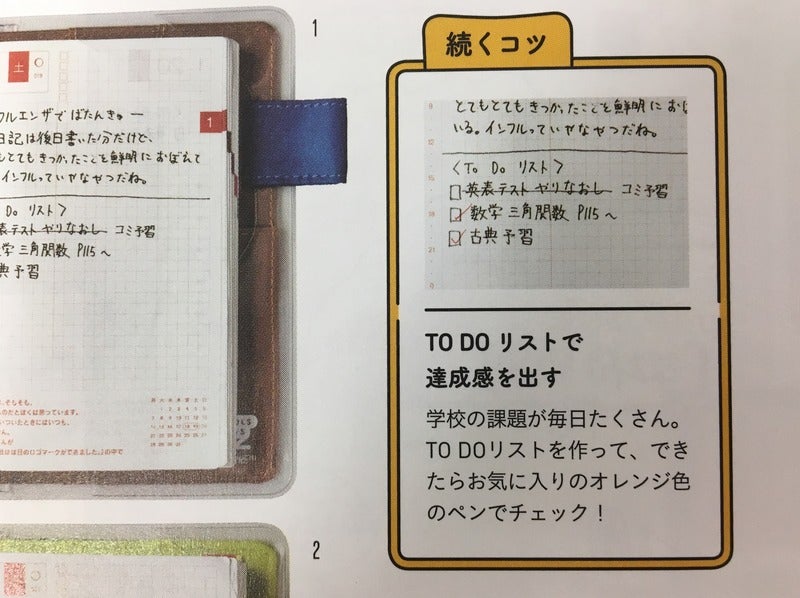 土
フルエンザでばたんきゅー
日記は後日書いた分だけど、
もとてもきつかったことを鮮明におぼえて
インフルっていやなやつだね。
Do リスト〉
表テストやりなおし コミ予習
学 三角関数 P115〜
典予習
1
そもそも、
1
2
続くコツ
とてもとてもきつかったことを鮮明におぼ
いる。インフルっていやなやつだね。
〈To Do リスト〉
英表テストやりなおし コミ予習
数学 三角関数 P115〜
古典予習
9
12
15
18
21
0
TO DO リストで
達成感を出す
学校の課題が毎日たくさん。
TO DOリストを作って、でき
たらお気に入りのオレンジ色
のペンでチェック！